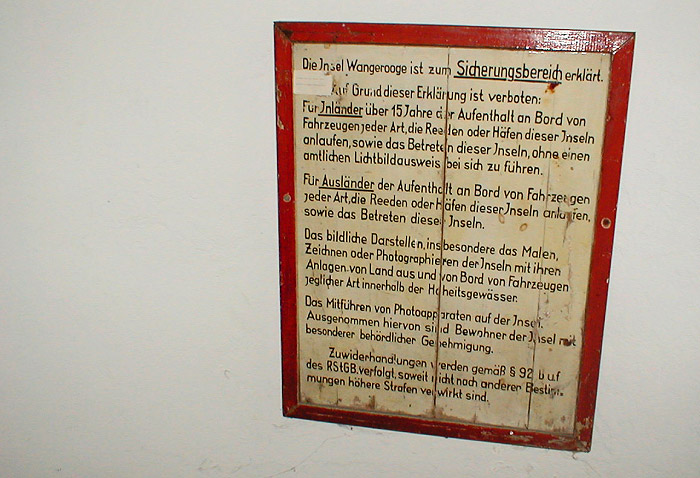 Die Insel Wangerooge ist zum Sicherungsbereich erklärt.
Auf Grund dieser Erklärung ist verboten:
Für Inländer über 15 Jahre der Aufenthalt an Bord von
Fahrzeugen jeder Art, die Reeden oder Häfen dieser Inseln
anlaufen, sowie das Betreten dieser Inseln, ohne einen
amtlichen Lichtbildausweis bei sich zu führen.
Für Ausländer der Aufenthalt an Bord von Fahrzeugen
jeder Art, die Reeden oder Häfen dieser Inseln anlaufen,
sowie das Betreten dieser Inseln.
Das bildliche Darstellen, insbesondere das Malen,
Zeichnen oder Photographieren der Inseln mit ihren
Anlagen von Land aus und von Bord von Fahrzeugen
jeglicher Art innerhalb der Hoheitsgewässer.
Das Mitführen von Photoapparaten auf der Insel.
Ausgenommen hiervon sind Bewohner der Insel mit
besonderer behördlicher Genehmigung.
Zuwiderhandlungen werden gemäß § 92 b uf
des RStGB. verfolgt, soweit nicht nach anderer Bestim-
mungen höhere Strafen verwirkt sind.